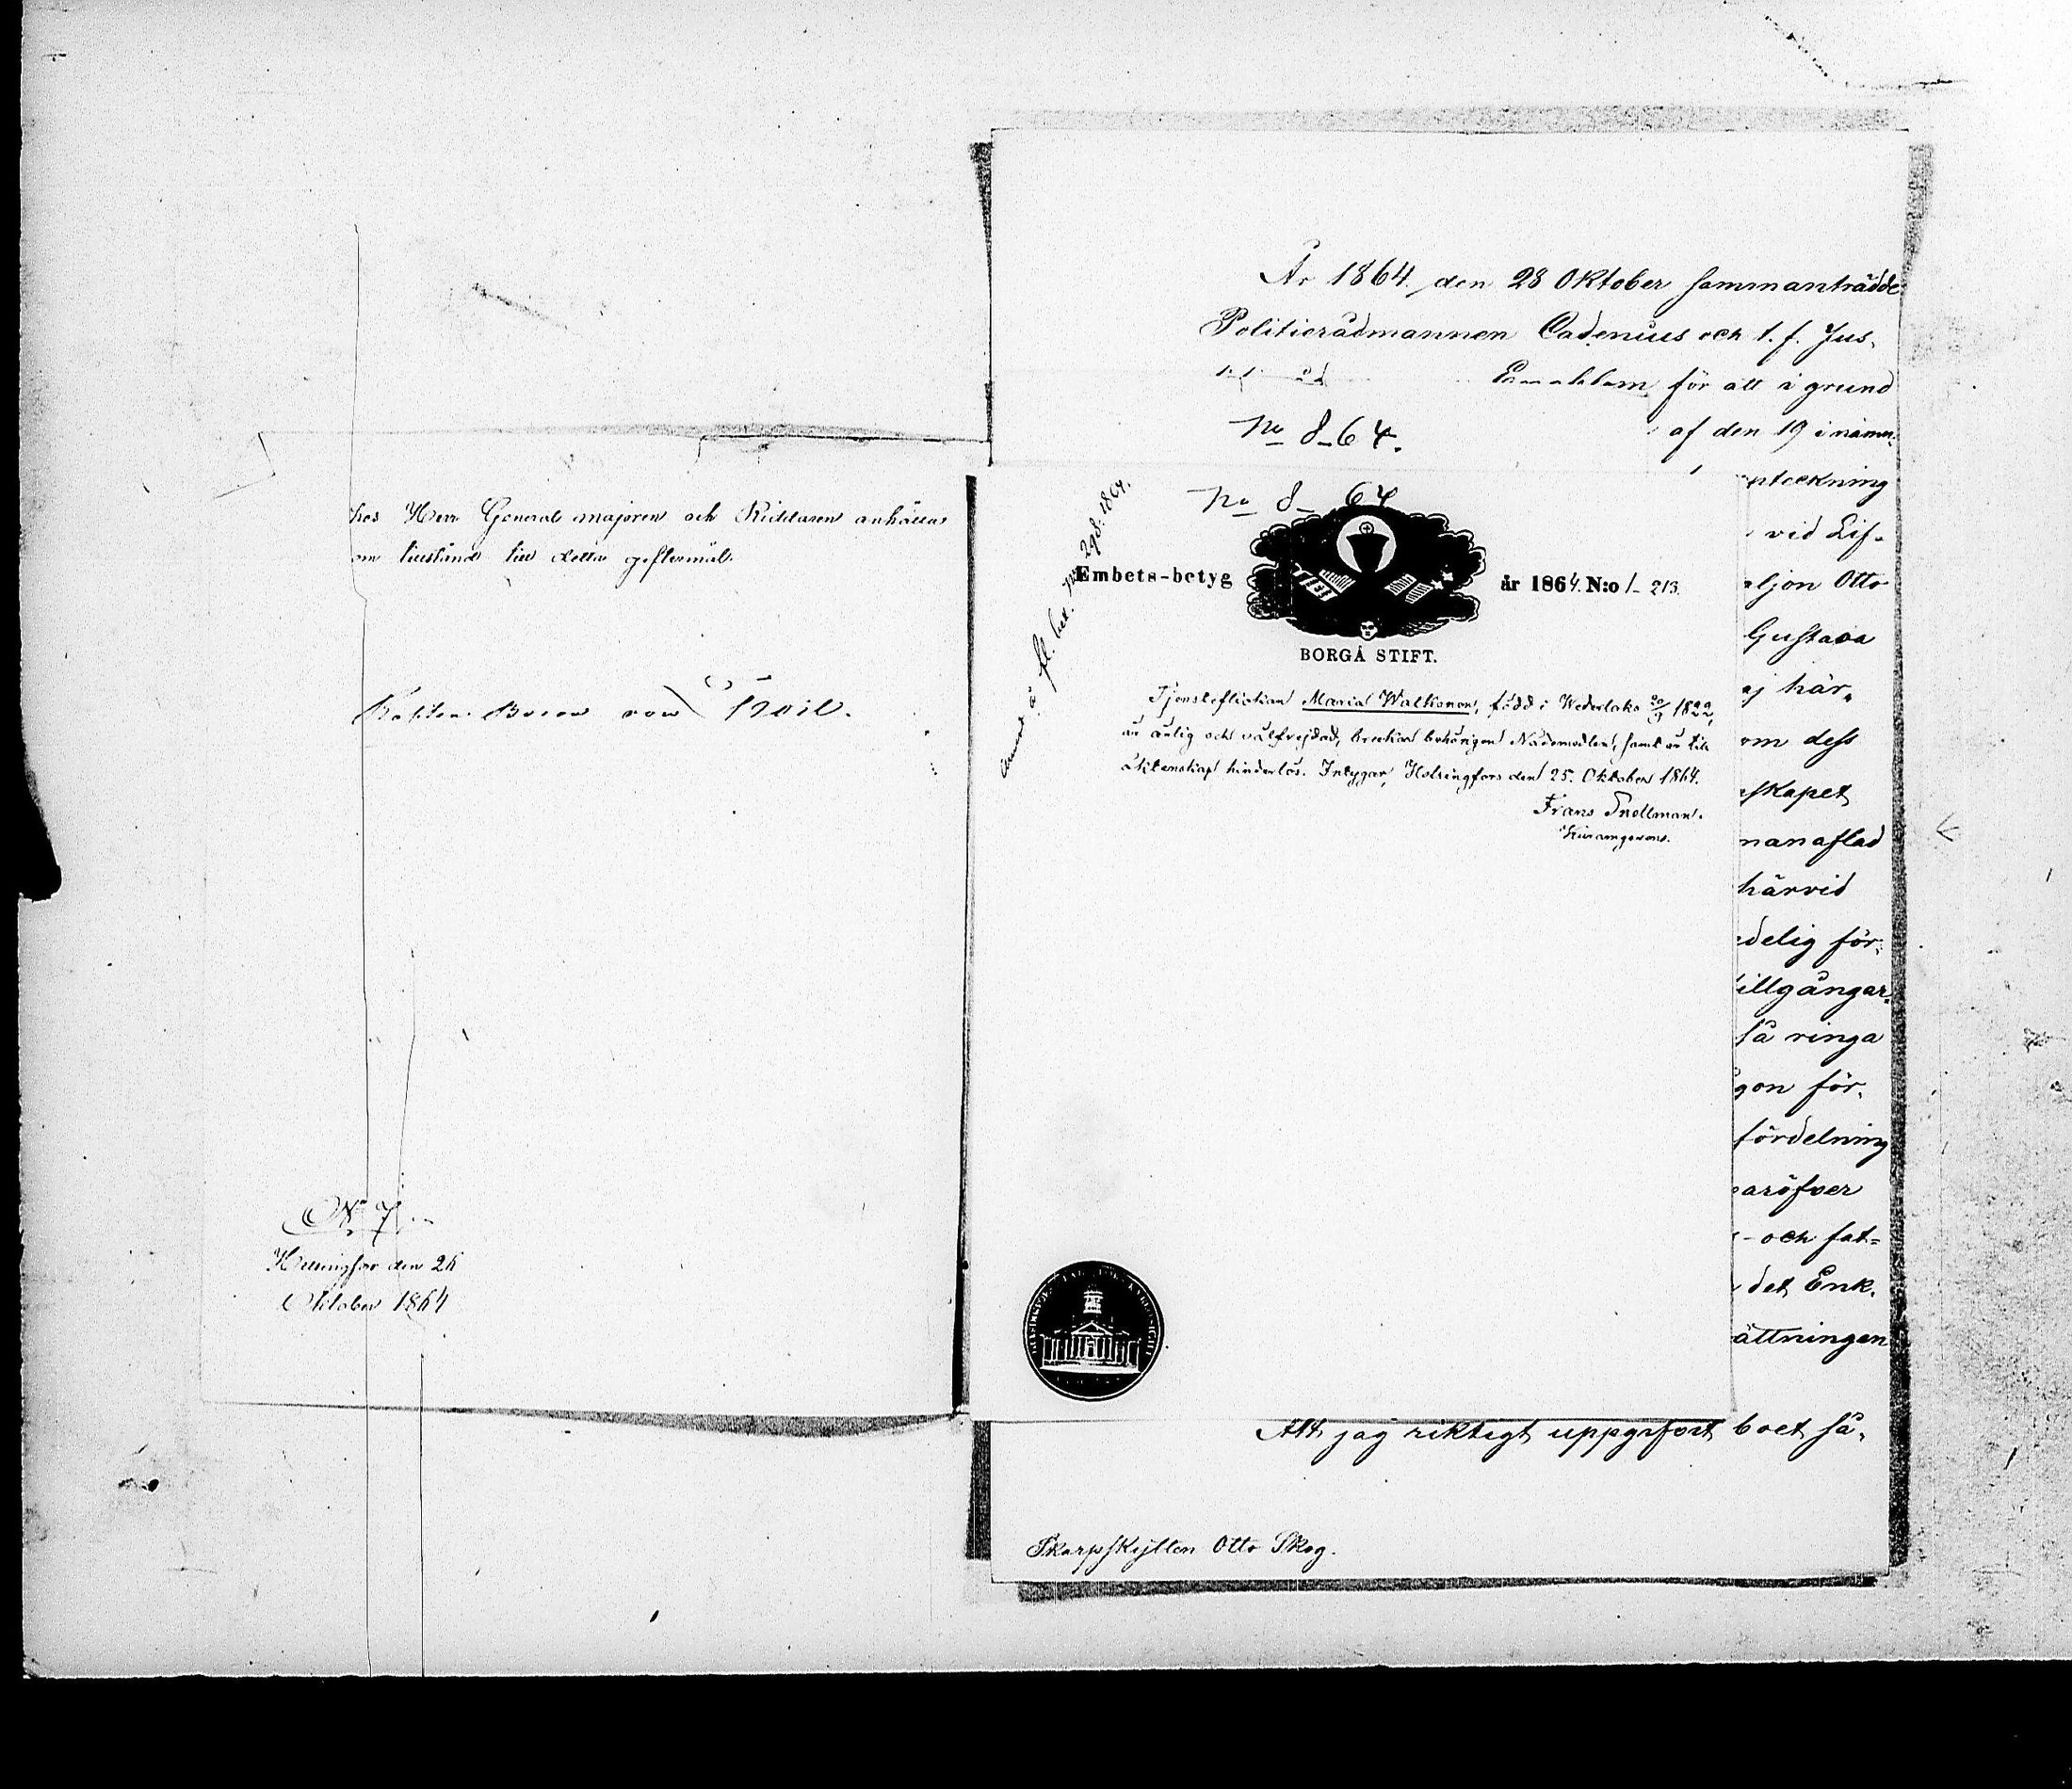 hos Herr General majoren och Riddaren anhålles
om tillstånd till detta giftermål.
Kapten Baron von
No 7
Helsingfors den 26
Oktober 1864
År 1864 den 28 Oktober sammanträdde
Politierådmannen Cadenius och t.f. Jus-
för att i grund
No 8-64.
af den 19 i nämn-
No 8-64
anteckning
vid Lif-
aljon Otto
Gustava
ej här-
om dess
skapet
manaflad
härvid
delig för-
tillgångar
så ringa
gon för-
fördelning
aröfver
och fat-
det Enk-
ättningen
No 298. 1864.
Embets-betyg
år 1864. N:o 1-213.
BORGÅ STIFT.
Tjensteflickan Maria Walkonen, född i Wederlaks 20/9 1822,
är ärlig och välfrejdad, brukar behörigen Nådemedlen, samt är till
äktenskap hinderlös. Intygar, Helsingfors den 25. Oktober 1864.
Frans Snellman.
Att jag riktigt uppgifvit boet så-
Skarpskytten Otto Skog.